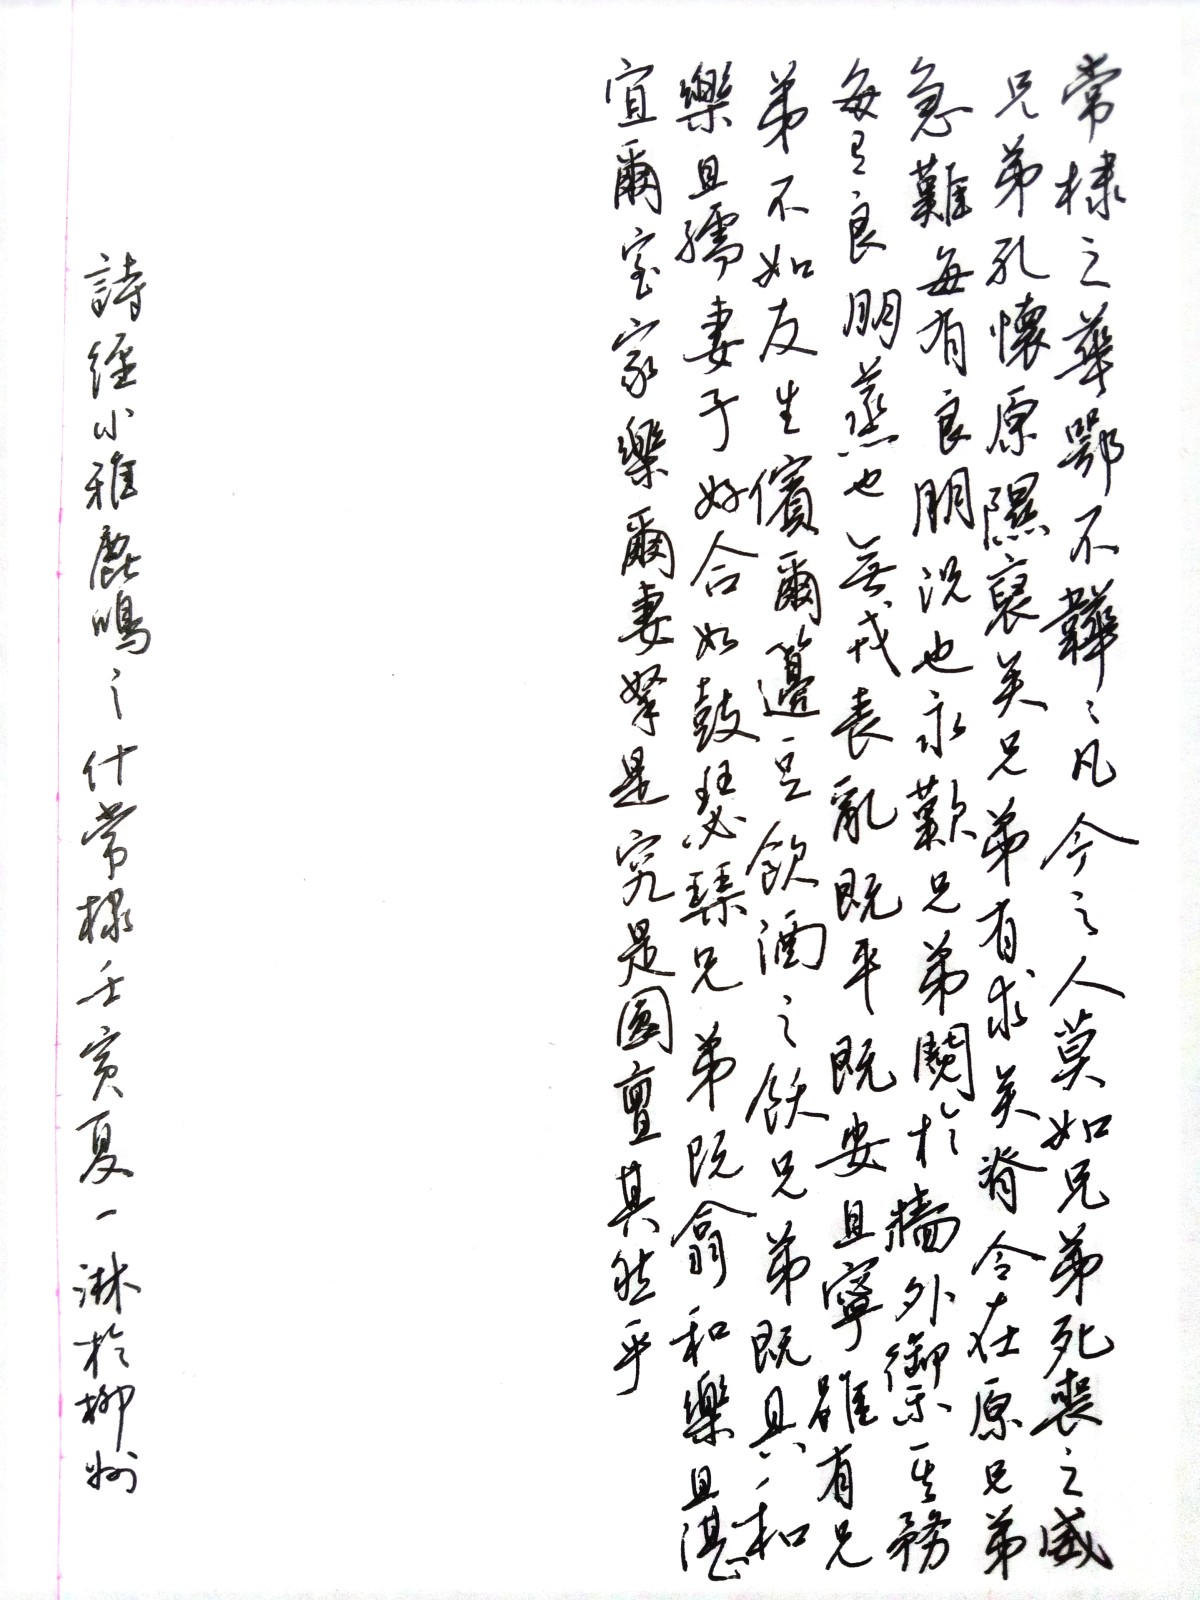 常棣之華鄂不韡〻凡今之人莫如兄弟死喪之威
兄弟孔懷原隰裒矣兄弟有求矣脊令在原兄弟
急難每有良朋況也永歎兄弟鬩於牆外禦其務
每有良朋烝也無戎喪亂既平既安且寧雖有兄
弟不如友生儐爾籩豆飲酒之飫兄弟既具和
樂且孺妻子好合如鼓瑟琴兄弟既翕和樂且湛
宜爾室家樂爾妻孥是究是圖亶其然乎
詩經小雅鹿鳴之什常棣壬寅夏一淋於柳州